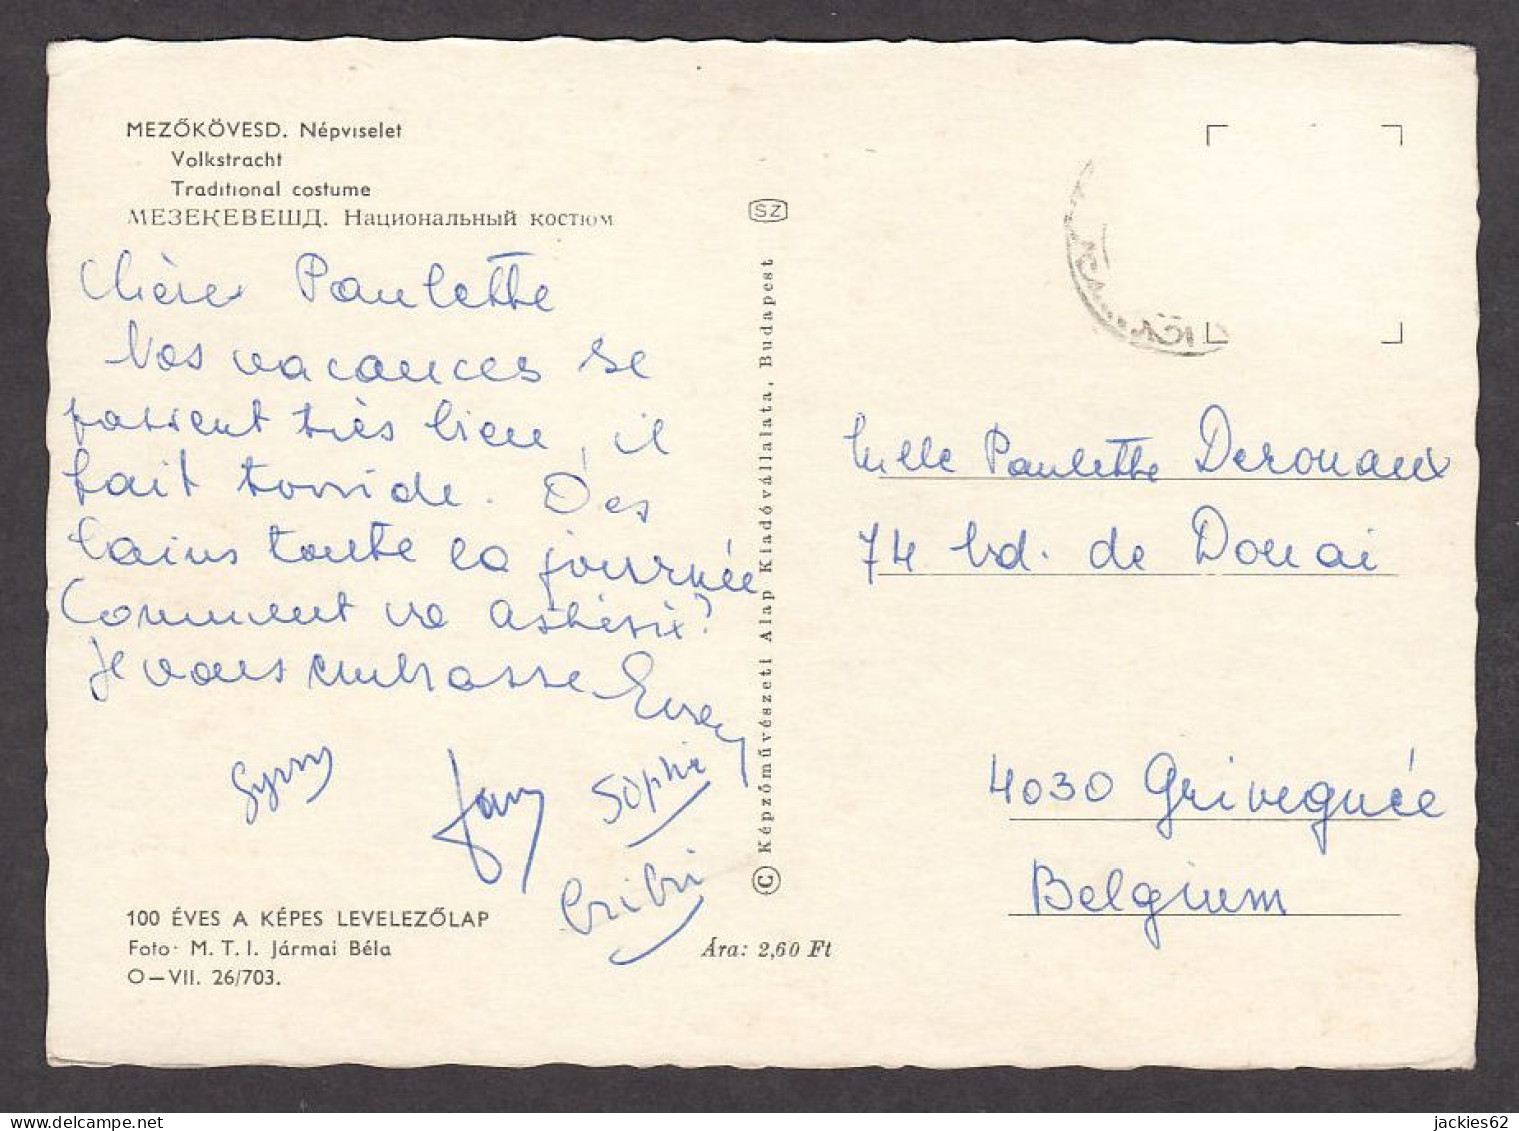 MEZŐKÖVESD. Népviselet
Volkstracht
Traditional costume
МЕЗЕКЕВЕШД. Национальный костюм
Chère Paulette
Nos vacances se
passent très bien, il
fait torride. Des
bains toute la journée
Comment va Astérix?
Je vous embrasse
Sophie
100 ÉVES A KÉPES LEVELEZŐLAP
Foto: M. T. I. Jármai Béla
O—VII. 26/703.
Ára: 2,60 Ft
SZ
© Képzőművészeti Alap Kiadóvállalata, Budapest
Mlle Paulette Derouaux
74 bd. de Douai
4030 Grivegnée
Belgium
jackies62